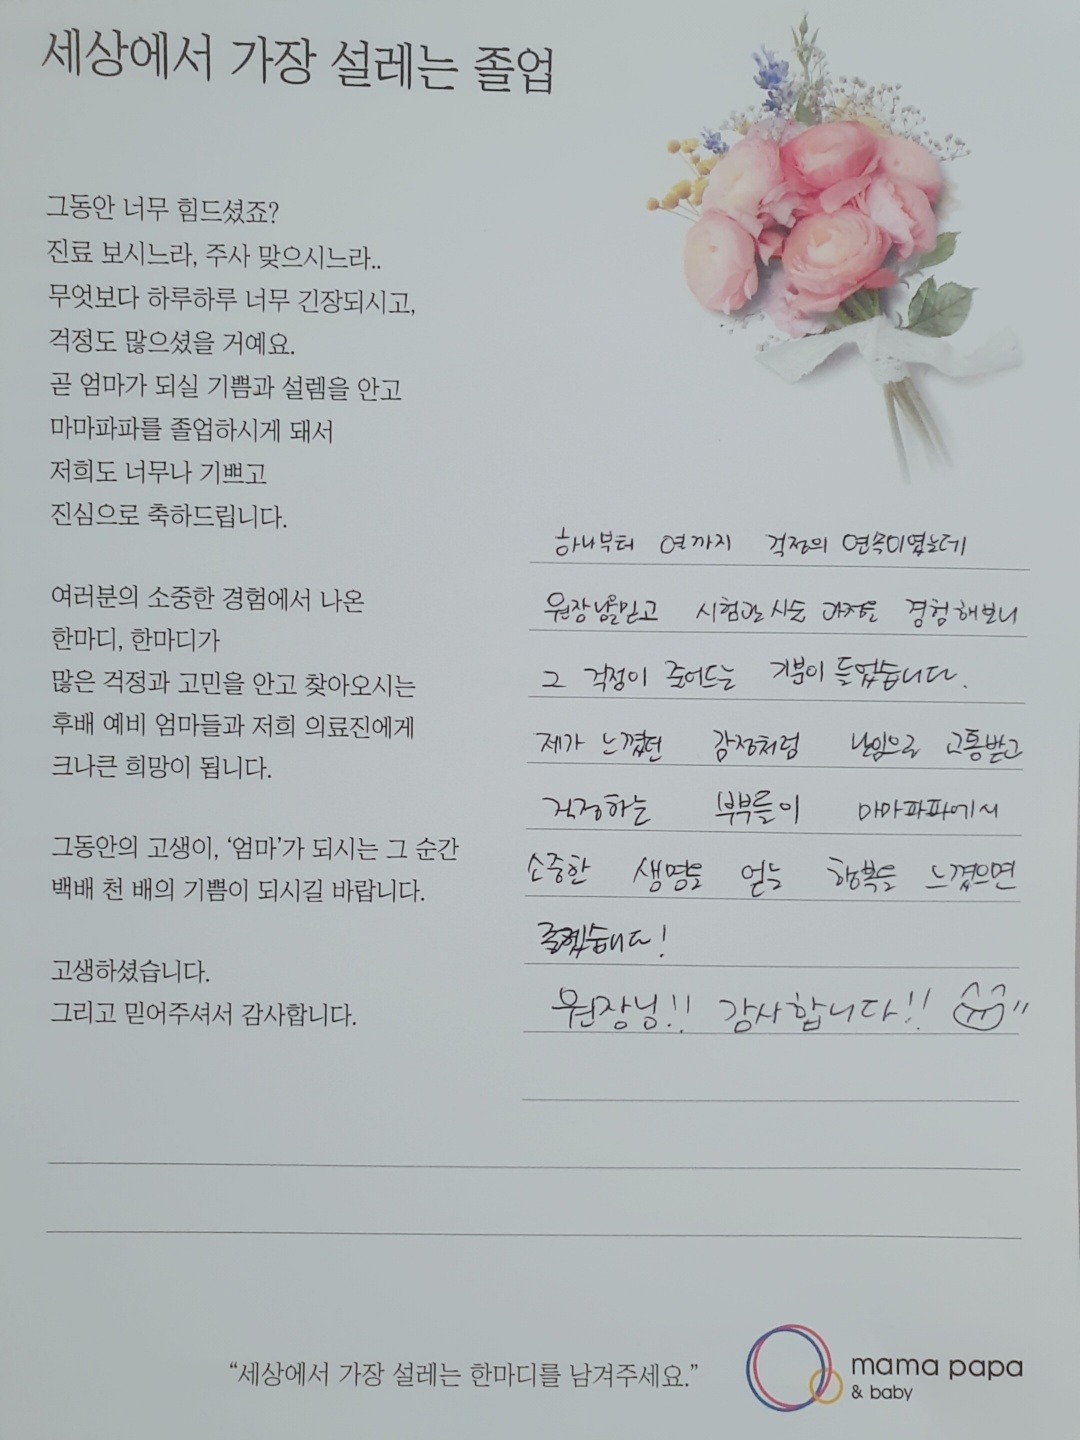 세상에서 가장 설레는 졸업
그동안 너무 힘드셨죠?
진료 보시느라, 주사 맞으시느라..
무엇보다 하루하루 너무 긴장되시고,
걱정도 많으셨을 거예요.
곧 엄마가 되실 기쁨과 설렘을 안고
마마파파를 졸업하시게 돼서
저희도 너무나 기쁘고
진심으로 축하드립니다.
여러분의 소중한 경험에서 나온
한마디, 한마디가
많은 걱정과 고민을 안고 찾아오시는
후배 예비 엄마들과 저희 의료진에게
크나큰 희망이 됩니다.
그동안의 고생이, ‘엄마’가 되시는 그 순간
백배 천 배의 기쁨이 되시길 바랍니다.
고생하셨습니다.
그리고 믿어주셔서 감사합니다.
하나부터 열까지 걱정의 연속이였는데
원장님을믿고 시험관 시술 과정을 경험해보니
그 걱정이 줄어드는 기분이 들었습니다.
제가 느꼈던 감정처럼 난임으로 고통받고
걱정하는 부부들이 마마파파에서
소중한 생명을 얻는 행복을 느꼈으면
좋겠습니다!
원장님!! 감사합니다!!
“세상에서 가장 설레는 한마디를 남겨주세요.”
mama papa
& baby